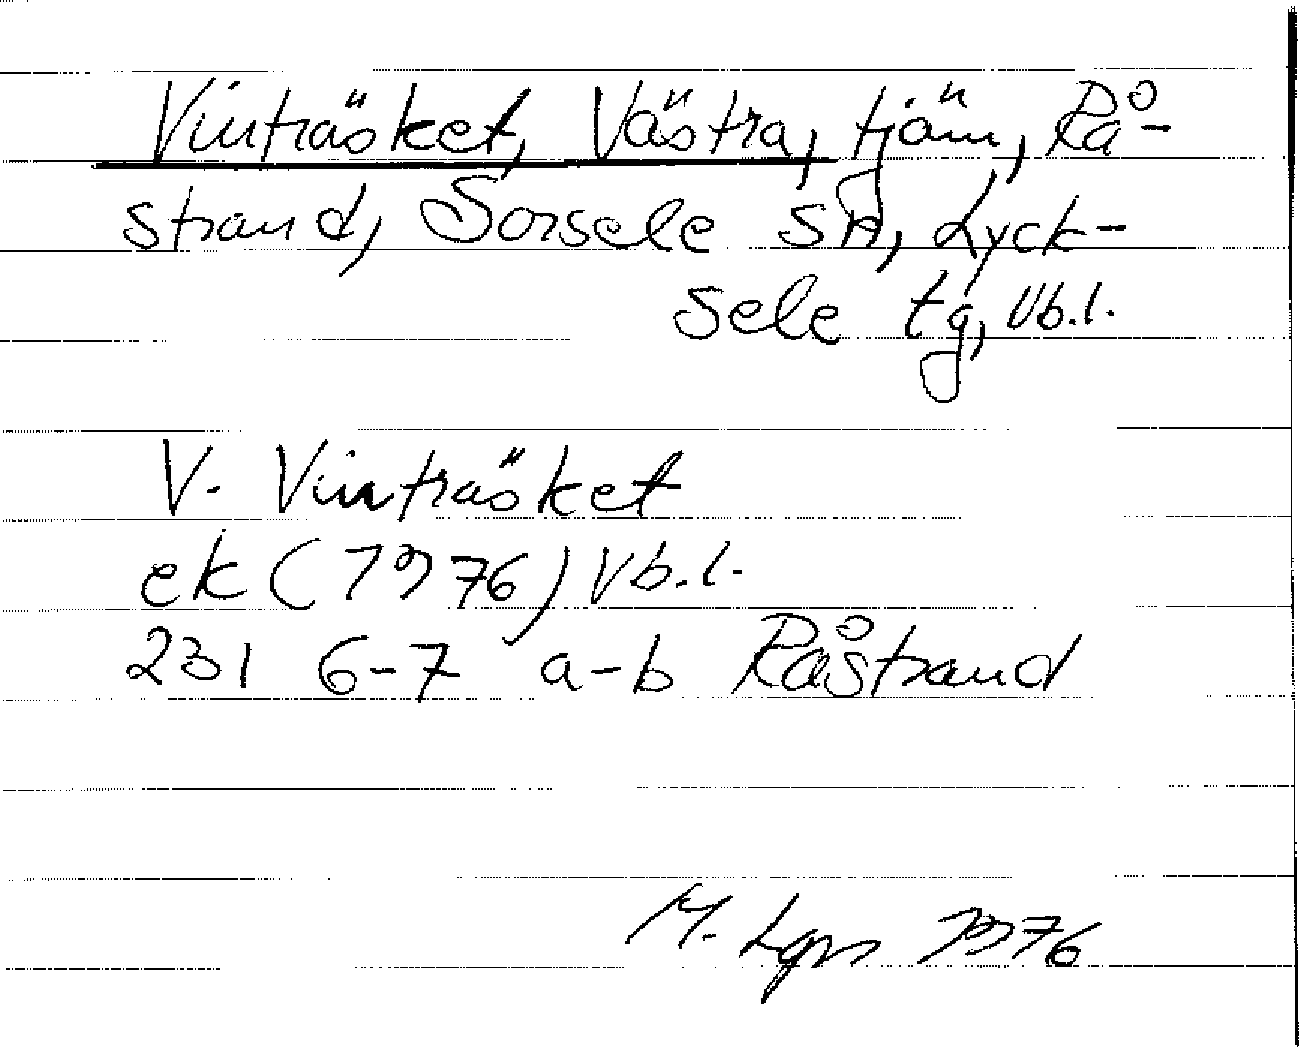 Vinträsket, Västra, tjärn, Rå-
strand, Sorsele sn, Lyck-
sele tg, Vb.l.
V. Vinträsket
ek (1976) Vb.l.
231 6-7 a-b Råstrand
M. Lgn 1976